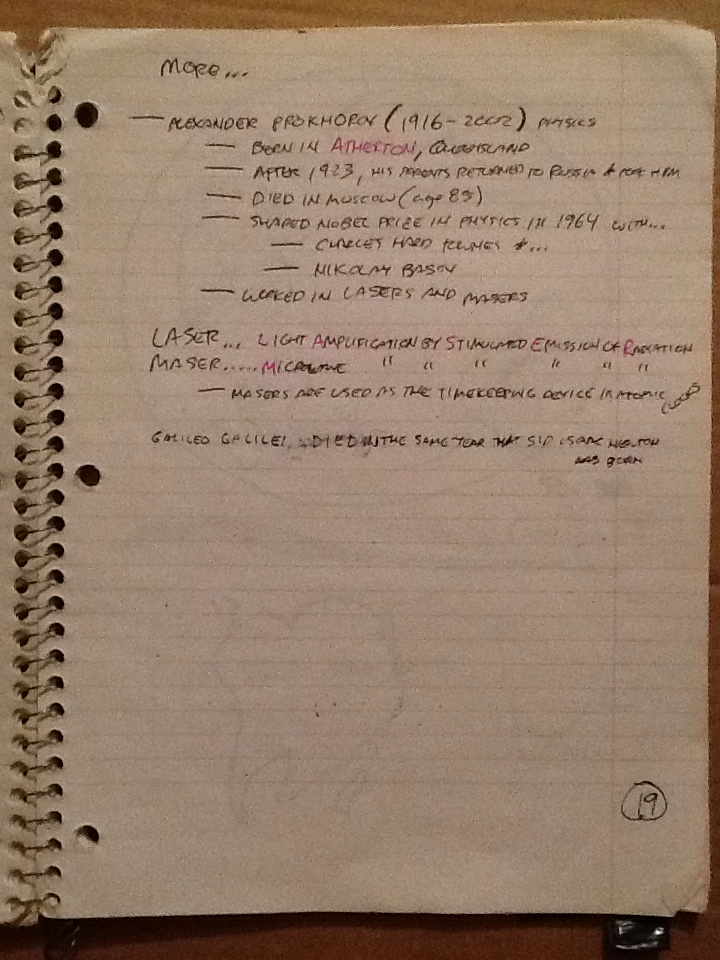 MORE...
— ALEXANDER PROKHOROV (1916-2002) PHYSICS
— BORN IN ATHERTON, QUEENSLAND
— AFTER 1923, HIS PARENTS RETURNED TO RUSSIA & TOOK HIM
— DIED IN MOSCOW (age 85)
— SHARED NOBEL PRIZE IN PHYSICS IN 1964 WITH...
— CHARLES HARD TOWNES &...
— NIKOLAY BASOV
— WORKED IN LASERS AND MASERS
LASER... LIGHT AMPLIFICATION BY STIMULATED EMISSION OF RADIATION
MASER..... MICROWAVE " " " " " "
— MASERS ARE USED AS THE TIMEKEEPING DEVICE IN ATOMIC CLOCKS
GALILEO GALILEI, DIED IN THE SAME YEAR THAT SIR ISAAC NEWTON
WAS BORN
19